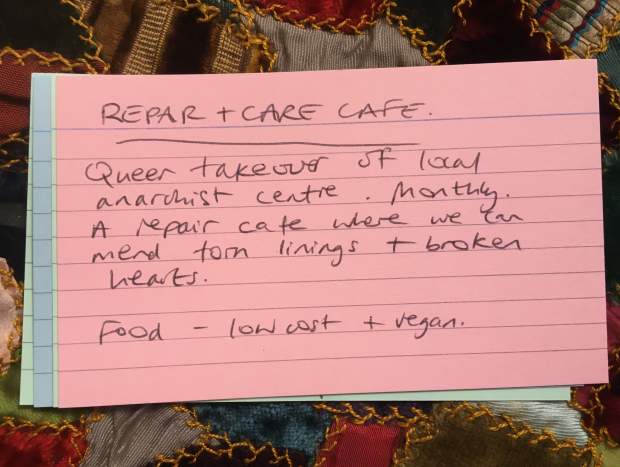 REPAR + CARE CAFE.
Queer takeover of local
anarchist centre. Monthly.
A repair cafe where we can
mend torn linings + broken
hearts.
Food - low cost + vegan.